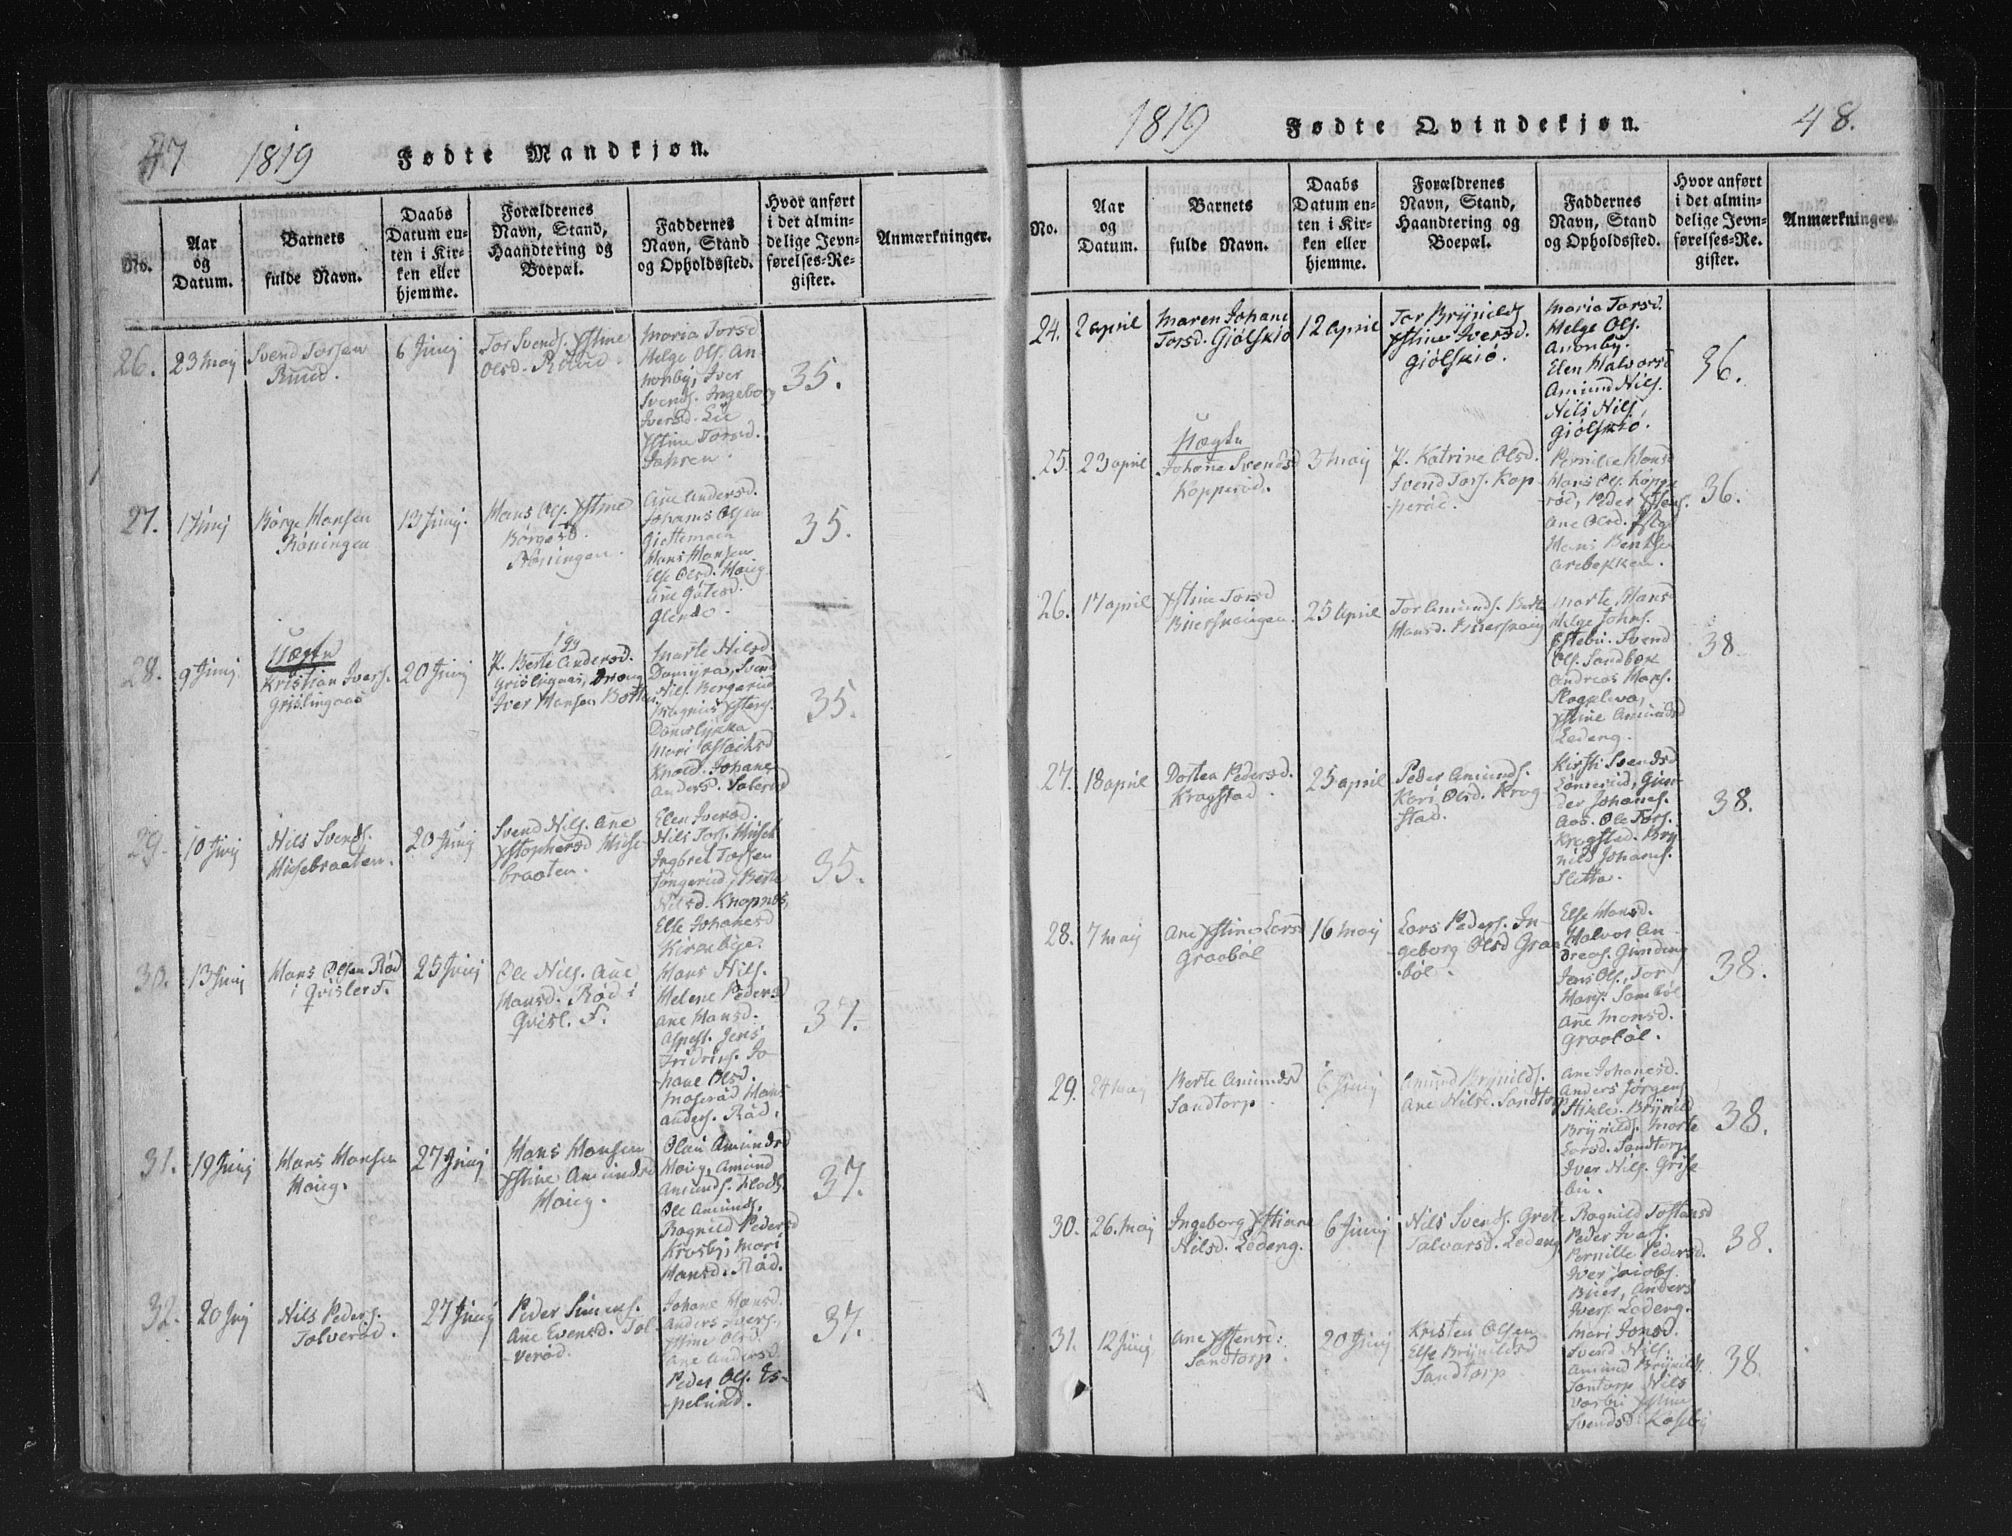 47 1819 Fødte Mandkjøn.
No.
Aar
og
Datum.
Barnets
fulde Navn.
Daabs
Datum en-
ten i Kir-
ken eller
hjemme.
Forældrenes
Navn, Stand,
Haandtering og
Boepæl.
Faddernes
Navn, Stand
og Opholdssted.
Hvor anført
i det almin-
delige Jevn-
førelses-Re-
gister.
Anmærkninger.
26.
23 maj
Svend Torsen
Ruud.
6 Junj
Tor Svends. Xstine
Olsd. Ruud.
Maria Torsd
Helge Ols. An
nonby, Iver
Svends. Ingeborg
Iversd. Lie
Xstine Torsd.
Jahren.
35.
27.
1 Junj
Børge Hansen
Røningen
13 Junj.
Hans Ols. Xstine
Børgesd.
Røningen.
Ane Andersd.
Johanes Olsen
Hans Hansen
Else Olsd. Houg
Ane
Glende.
35.
28.
9 Junj
Uægte
Kristian Ivers.
Grislingaas
20 Junj
P. Berte Andersd.
Grislingaas,
Iver Hansen
Marte Nilsd.
Damyra, Svend
Nils. Bergerud
Magnus Xstens.
Damslykka
Mari
Knold. Johane
Andersd. Solerud
35.
29.
10 Junj
Nils Svends.
Musebraaten.
20 Junj
Svend Nils. Ane
Xstophersd Muse
braaten.
Elen Iversd.
Nils Tors. Musek
Ingbret Tossen
Jongerud, Berte
Nilsd. Knapnes,
Else Johanesd
Kirkebye.
35.
30.
13 Junj
Hans Olsen Rød
i Qvislers.
25 Junj
Ole Nils. Ane
Hansd. Rød i
Qvisl. F.
Hans Nils.
Helene Pedersd
Ane Hansd.
Aspest. Jens
Fridrics. Jo-
hane Olsd.
Moserød Hans
Anders. Rød.
37.
31.
19 Junj
Hans Hansen
Houg.
27 Junj
Hans Hansen
Xstine Amundsd
Houg.
Olau Amundsd
Houg, Amund
Amunds. Klods
Ole Amunds.
Ragnild Pedersd
Krosby, Mari
Hansd. Rød.
37.
32.
20 Junj
Nils Peders.
Tolverød.
27 Junj
Peder Simens.
Ane Evensd. Tol-
verød.
Johane Hansd.
Anders Ivers.
Xstine Olsd.
Ane Andersd
Peder Ols. Es-
pelund.
37.
1819 Fødte Qvindekjøn. 48.
No.
Aar
og
Datum.
Barnets
fulde Navn.
Daabs
Datum en-
ten i Kir-
ken eller
hjemme.
Forældrenes
Navn, Stand,
Haandtering og
Boepæl.
Faddernes
Navn, Stand
og Opholdssted.
Hvor anført
i det almin-
delige Jevn-
førelses-Re-
gister.
Anmærkninger
24.
2 april
Maren Johane
Torsd. Giølskiø
12 april
Tor Brynilds
Xstine Iversd.
Giølskiø.
Maria Torsd.
Helge Ols.
Anonby.
Elen Halvorsd
Amund Nils.
Nils Nils.
Giølskiø.
36.
25.
23 april
Uægte
Johane Svendsd
Kopperød.
3 maj
P. Katrine Olsd.
Svend Tors. Kop
perød.
Pernille Hansd
Hans Ols. Koppe
rød, Peder Xstens.
Ane Olsd.
Hans Bentsen
Arebekken.
36.
26.
17 april
Xstine Torsd
Buerskougen.
25 april
Tor Amunds. Berte
Hansd. Buerskoug
Marte Hansd
Helge Johns.
Svend
Ols. Sandbæk
Andreas Hans.
Xstine Amundsd
Ledeng.
38.
27.
18 april
Dortea Pedersd.
Krogstad.
25 april
Peder Amunds.
Kari Olsd. Krog-
stad.
Kirsti Svendsd
Lømerud, Gun-
der Johanes.
Aas. Ole Tors.
Krogstad. Bry
nild Johanes.
Sletta.
38.
28.
7 maj
Ane Xstine Larsd
Graabøl
16 maj
Lars Peders. In-
geborg Olsd Graa
bøl.
Else Hansd.
Halvor An-
dreas. Gundeng
Jens Ols. Tor
Hans. Sambøl
Ane Monsd.
Graabøl.
38.
29.
24 maj
Berte Amundsd
Sandtorp.
6 Junj
Amund Brynilds.
Ane Nilsd. Sandtorp
Ane Johanesd.
Anders Jørgens
Stikle. Brynild
Brynilds. Marte
Larsd. Sandtorp
Iver Nils. Grise
bu.
38.
30.
26. maj
Ingeborg Xstiane
Nilsd. Ledeng.
6 Junj
Nils Svends. Grete
Salvarsd. Ledeng
Ragnild Tostensd
Peder Ivars.
Pernille Pedersd.
Iver Jacobs.
Buer, Anders
Ivers. Ledeng.
38.
31.
12 Junj
Ane Xstensd:
Sandtorp.
20 Junj
Kristen Olsen
Else Brynildsd
Sandtorp
Mari Jonsd.
Svend Nils.
Amund Brynilds.
Santorp Nils
Xstine
Svendsd. Kaseby
38.